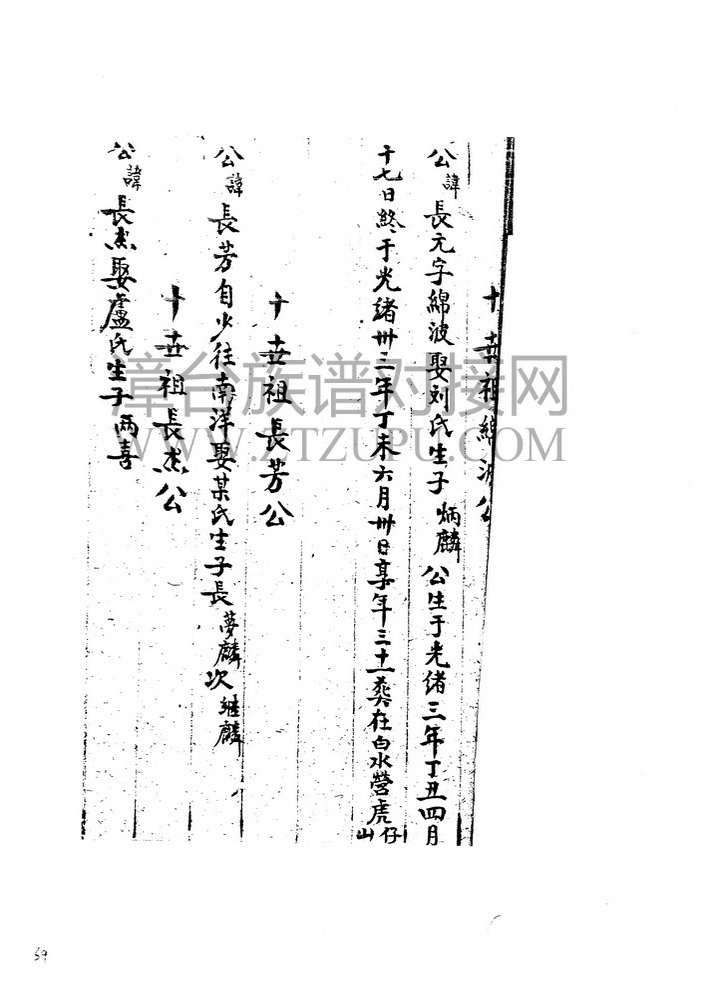 十世祖綿波公
公諱長元字綿波娶刘氏生子炳麟公生于光緒三年丁丑四月
十七日終于光緒卅三年丁未六月卅日享年三十一葬在白水營虎仔山
十世祖長芳公
公諱長芳自少往南洋娶某氏生子長夢麟次継麟
十世祖長杰公
公諱長杰娶盧氏生子両喜
漳台族谱对接网
WWW.ZTZUPU.COM
59